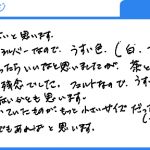 いと思います。
ルバーなので、うすい色、(白、
ったらいいなと思いましたが、茶と
残念でした。フェルトなので、うす
いかとも思います。
ていたものが、もっと小さいサイズだっ
もあればと思います。